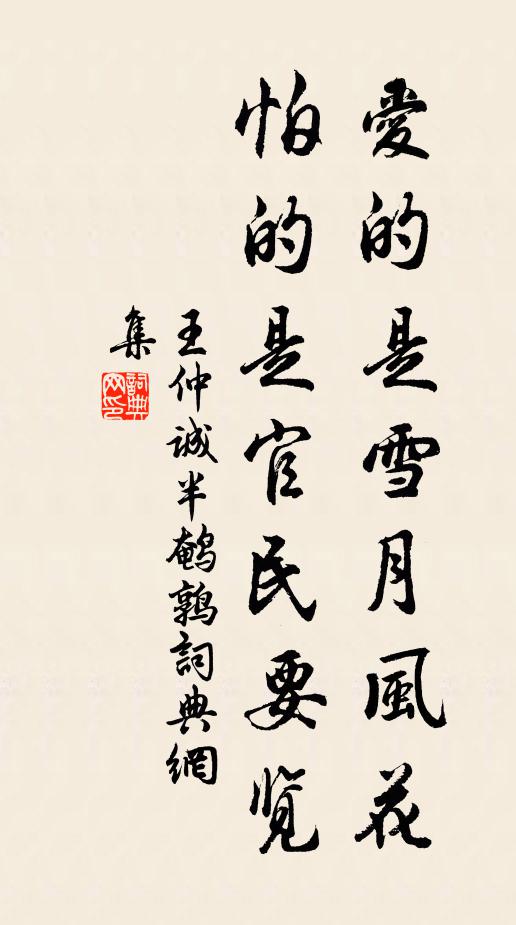 愛的是雪月風花
怕的是官民要覧
王仲诚半鹌鹑詞典網
集
詞典
网印